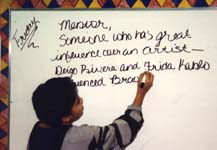 Friday
Mentor,
Someone who has great
influence over an artist—
Deigo Rivera and Frida Kahlo
uenced Bra